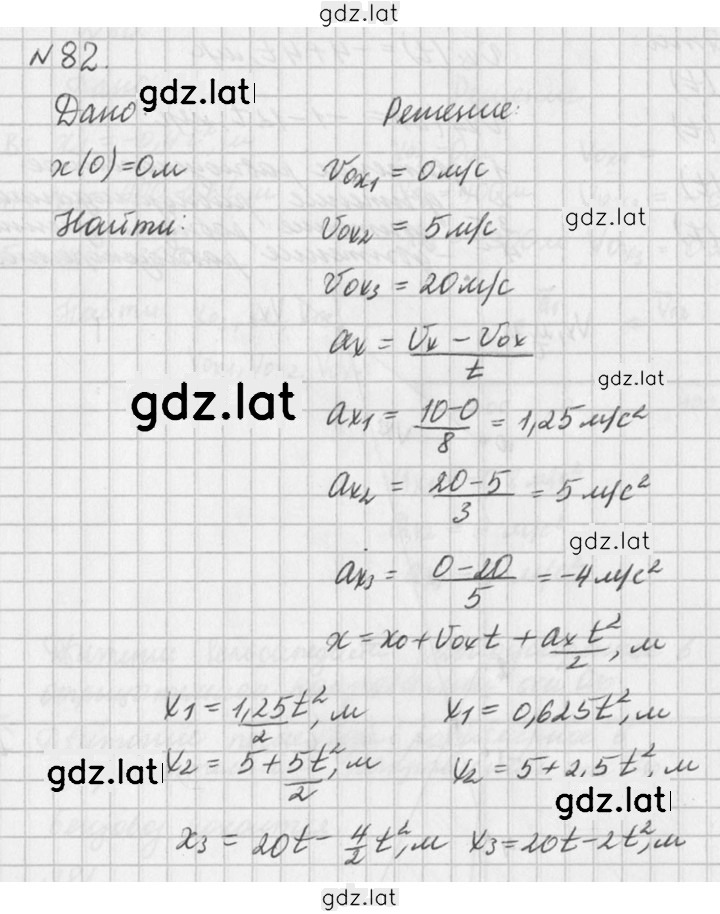 gdz.lat
№82.
Дано gdz.lat
Решение:
x(0)=0м
v₀ₓ₁ = 0м/с
Найти:
v₀ₓ₂ = 5м/с
gdz.lat
v₀ₓ₃ = 20м/с
aₓ = (vₓ - v₀ₓ)/t
gdz.lat
gdz.lat
aₓ₁ = (10-0)/8 = 1,25 м/с²
aₓ₂ = (20-5)/3 = 5 м/с²
gdz.lat
aₓ₃ = (0-20)/5 = -4 м/с²
x = x₀ + v₀ₓt + aₓt²/2, м
x₁ = 1,25t²/2, м x₁ = 0,625t², м
x₂ = 5 + 5t²/2, м x₂ = 5 + 2,5t², м
gdz.lat
gdz.lat
x₃ = 20t - 4/2 t², м x₃ = 20t - 2t², м
gdz.lat